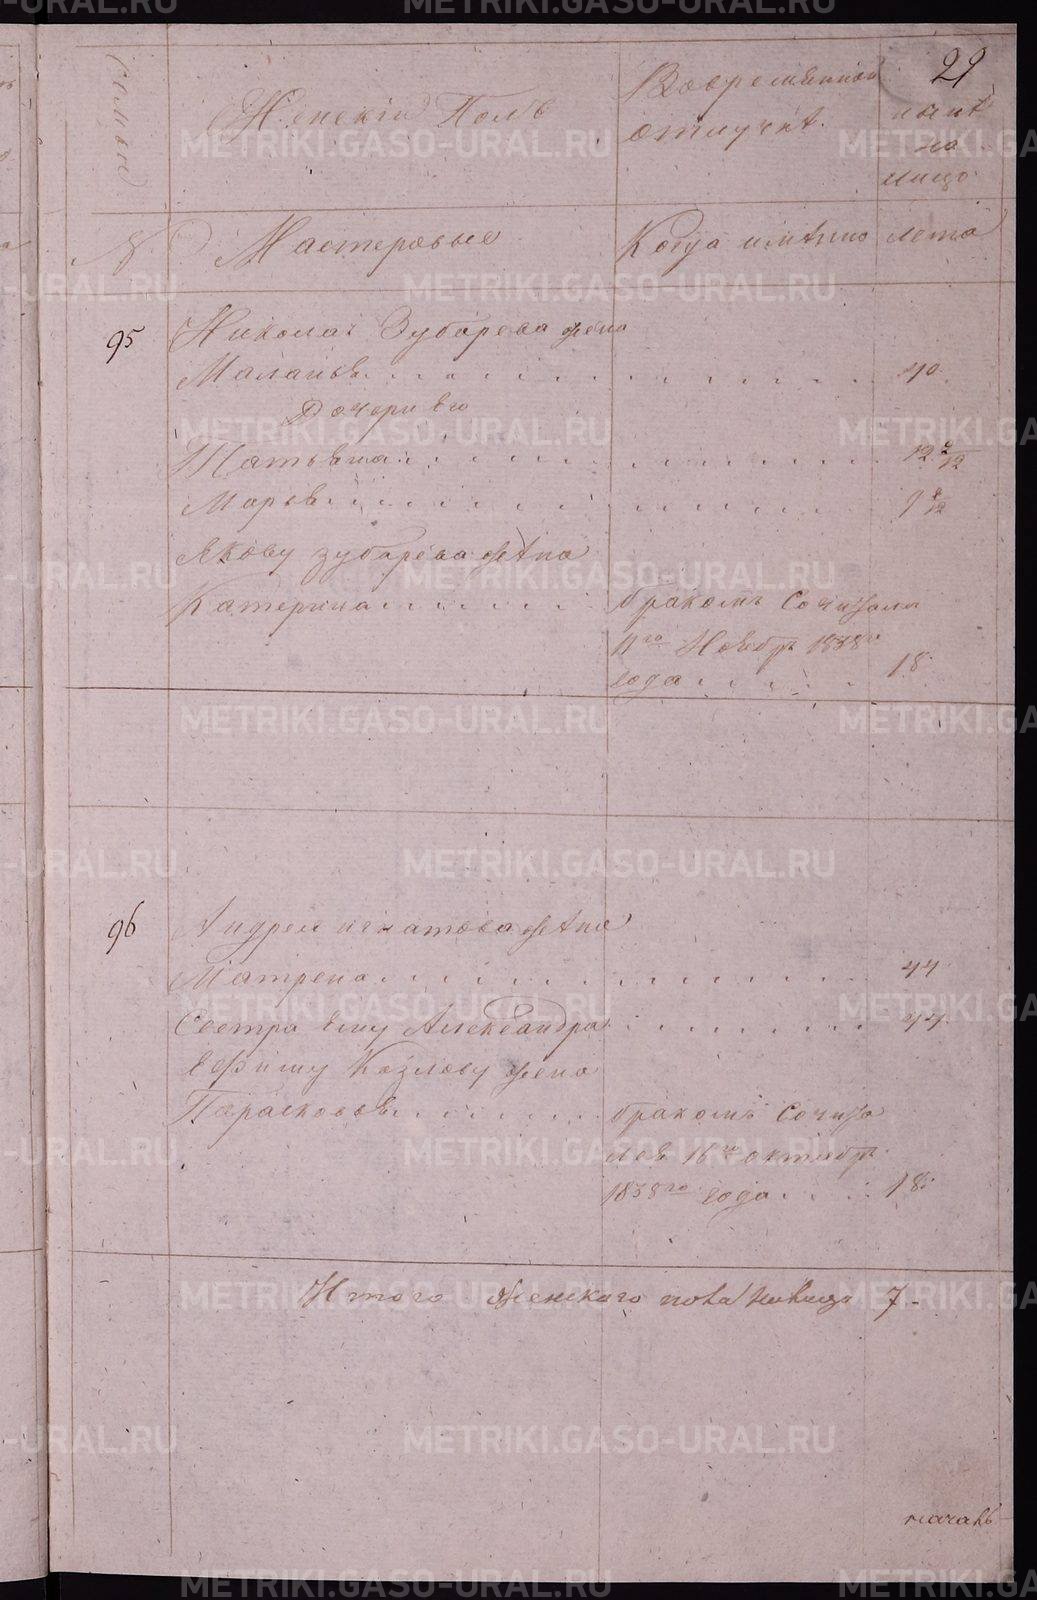 29
Семьи
Женскiй Полъ
Вовременной
отлучкѣ.
нынѣ
на
лицо
№
Мастеровые
Когда имѣнно
лета
95
Николая Зубарева жена
Маланья
40
Дочери его
Татьяна
12 2/12
Марья
Якову зубарева жѣна
Катерина
бракомъ Сочи
11го Ноябр 1838го
года
18
96
Андрея игнатова жѣна
Матрена
44
Сестра ему Александра
44
Ефиму Козлову жена
Парасковья
бракомъ Сочи
лся 16го октябр
1838го года
18
Итого женскаго пола налицо 7
METRIKI.GASO-URAL.RU